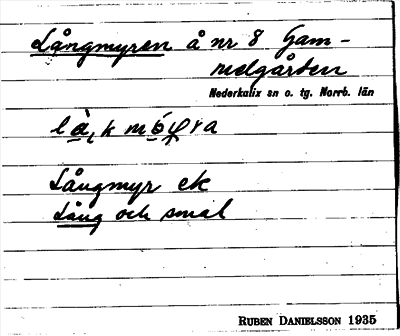 Långmyren å nr 8 Gam-
melgården
Nederkalix sn o. tg. Norrb. län
Långmyr ek
Lång och smal
RUBEN DANIELSSON 1935